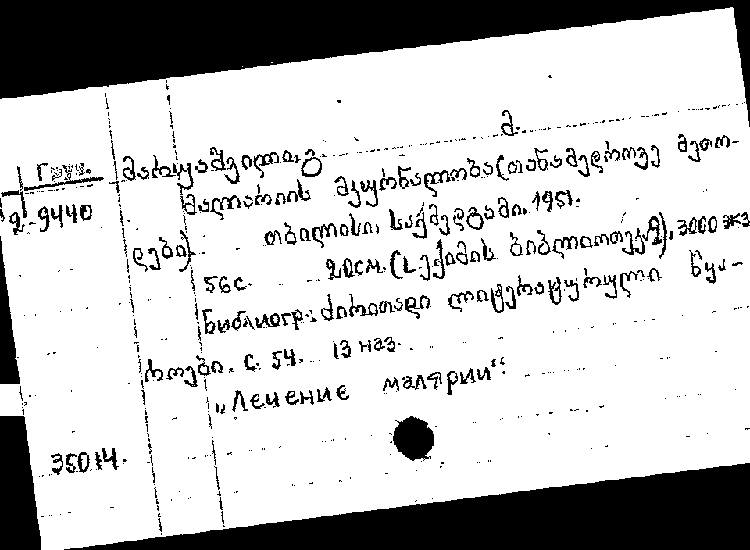 მ.
Груз.
მარუაშვილი, გ.
2-9440
მალარიის მკურნალობა (თანამედროვე მეთო-
დები)
თბილისი, საქმედგამი, 1951.
56 с. 20 см. (ექიმის ბიბლიოთეკა), 3000 экз
Библиогр: ძირითადი ლიტერატურული წყა-
როები. с. 54. 13 наз.
„Лечение малярии“.
35014.